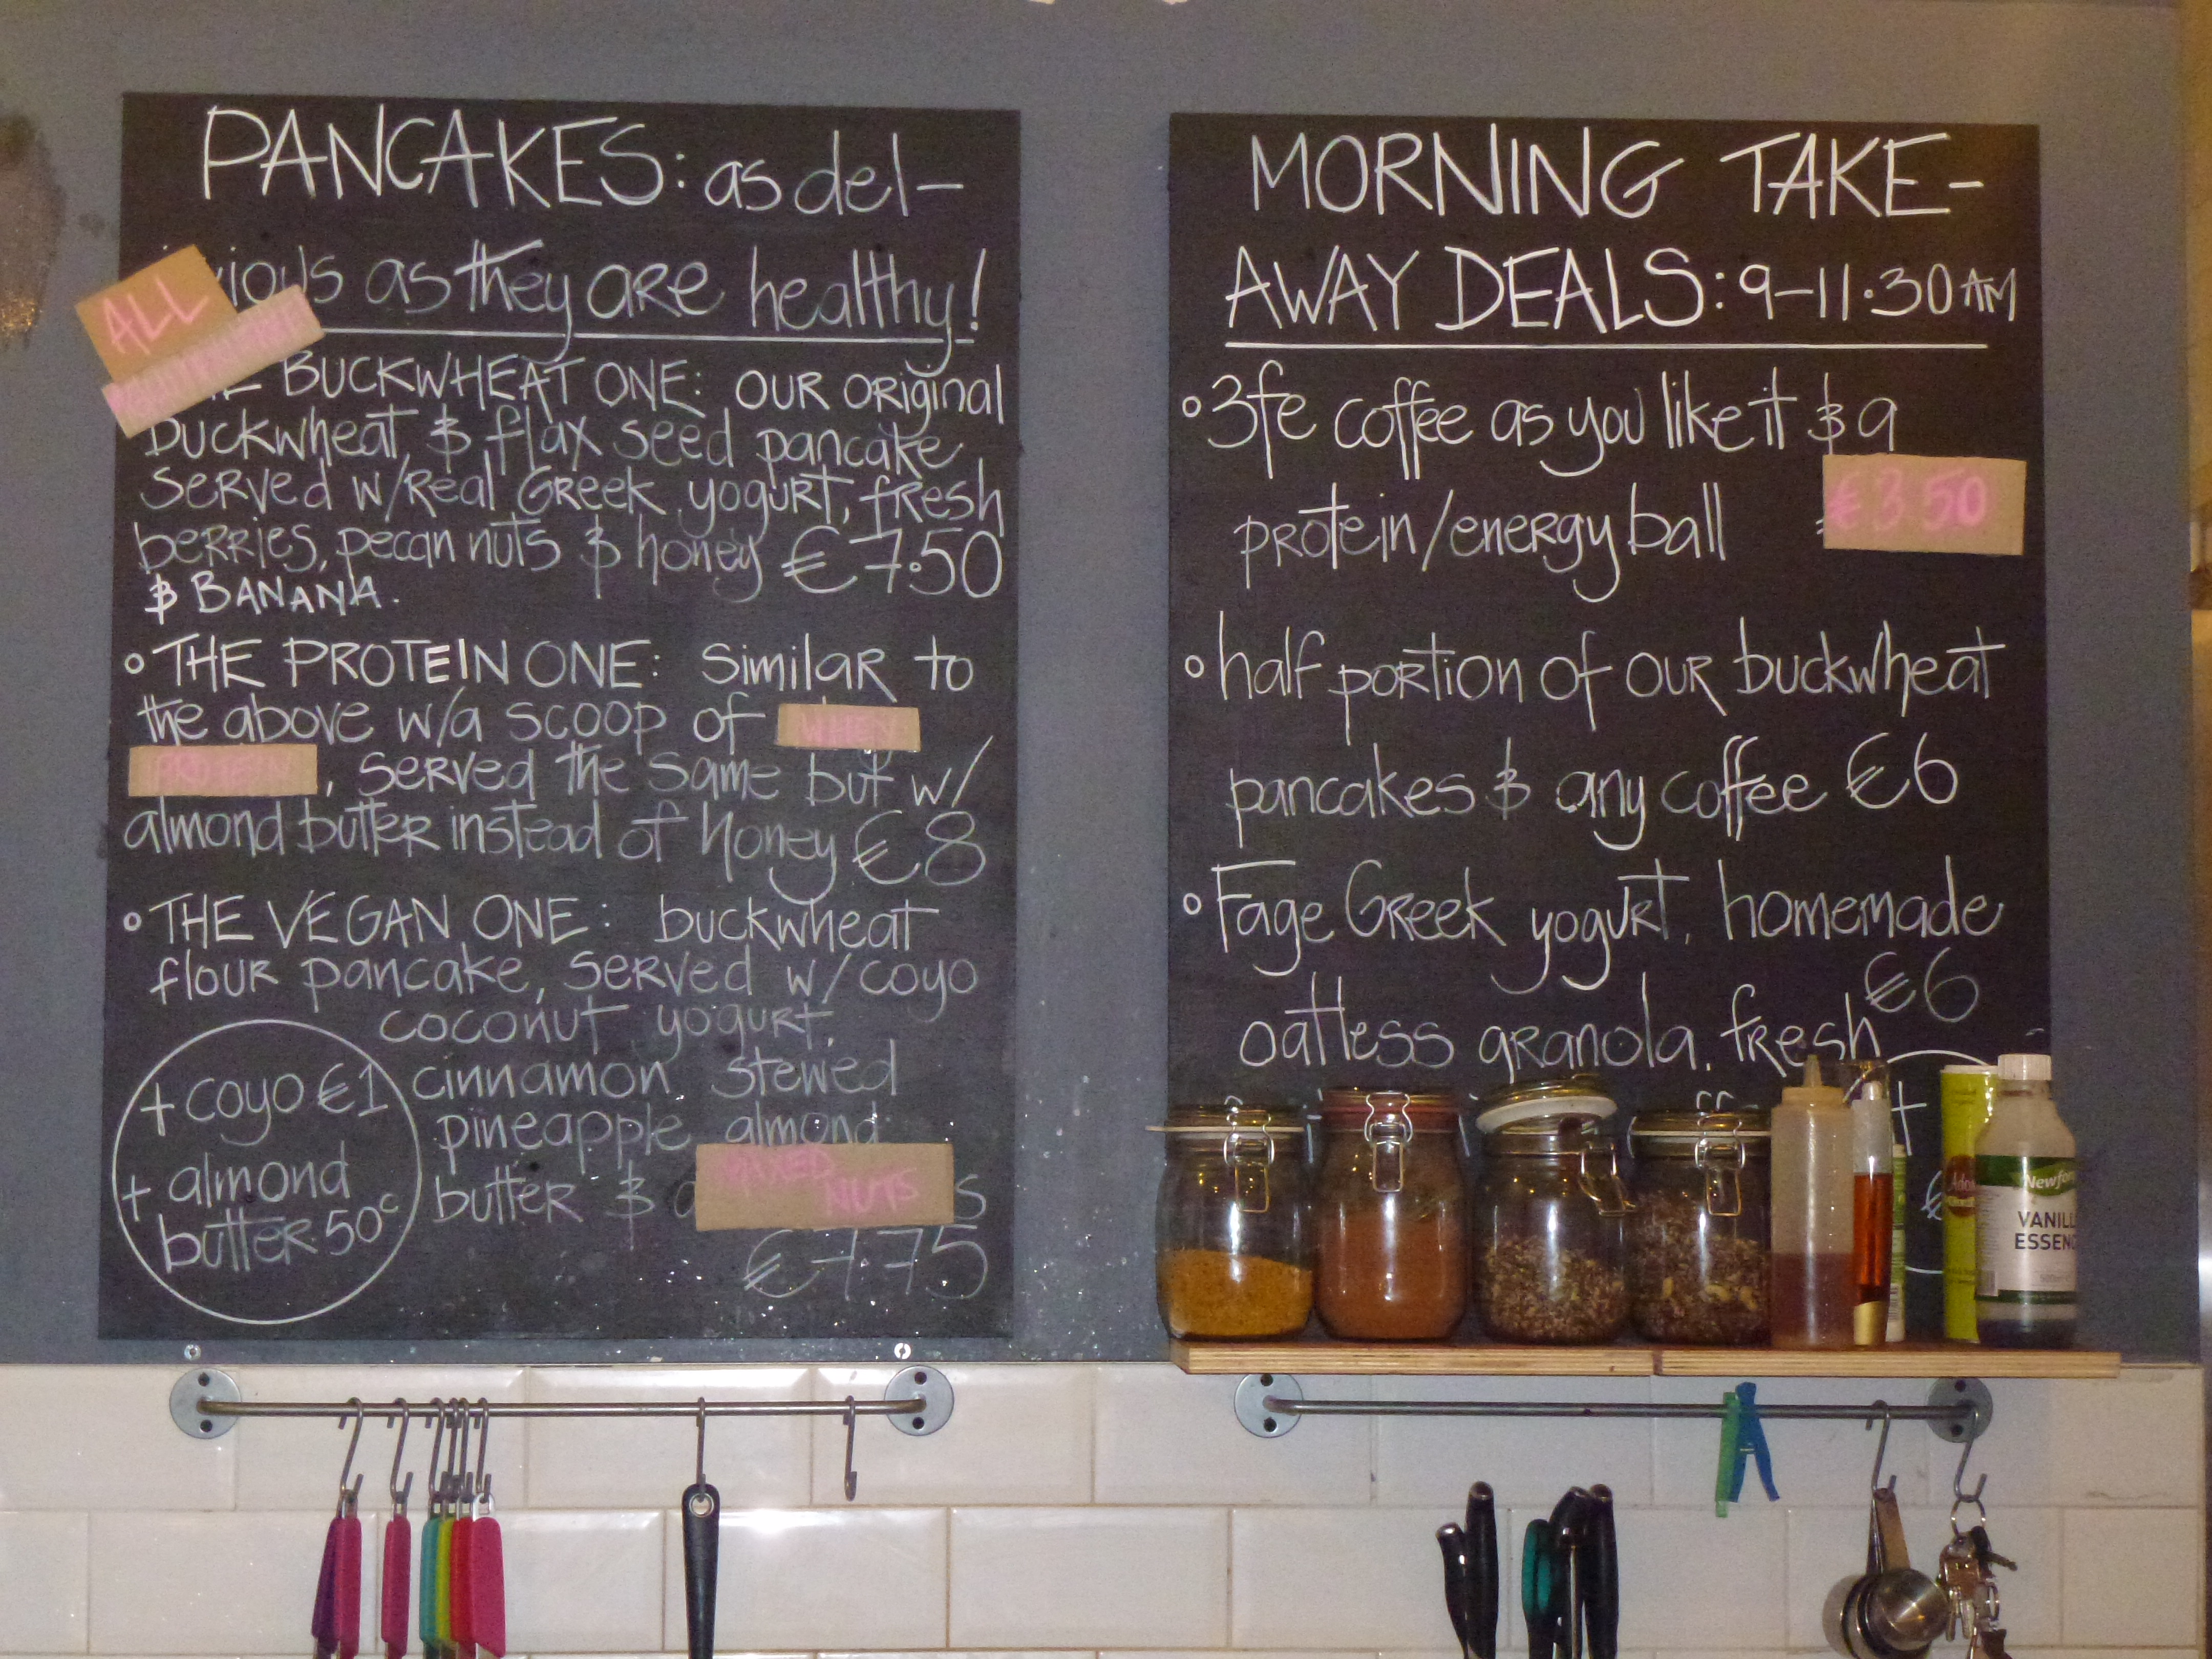 PANCAKES: as del-
icious as they are healthy!
ALL
BUCKWHEAT ONE: OUR ORiginal
buckwheat & flax seed pancake
served w/Real Greek yogurt, fresh
berries, pecan nuts & honey €7.50
& BANANA.
° THE PROTEIN ONE: SimilaR to
the above w/a scoop of WHEY
PROTEIN, served the same but w/
almond butter instead of honey €8
° THE VEGAN ONE: buckwheat
flour pancake, served w/coyo
coconut yogurt,
cinnamon stewed
pineapple almond
butter & MIXED
NUTS
€7.75
+ coyo €1
+ almond
butter 50c
MORNING TAKE-
AWAY DEALS: 9-11.30 AM
° 3fe coffee as you like it & a
protein/energy ball €3.50
° half portion of our buckwheat
pancakes & any coffee €6
° Fage Greek yogurt, homemade
€6
oatless granola, fresh
+
€
Newfor
VANILL
ESSENC